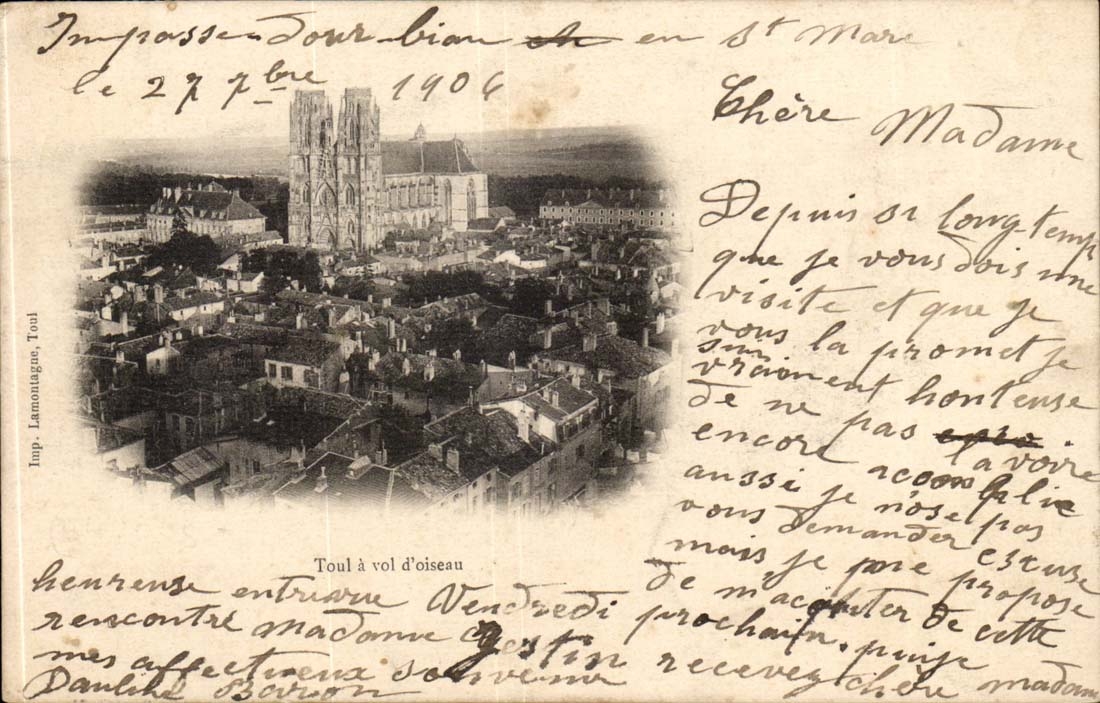 Impasse Dour-bian en St Marc
le 27 7bre 1906
Chère Madame
Depuis si long-temps
que je vous dois une
visite et que je
vous la promet je
suis
vraiment honteuse
de ne pas l'avoire
encore accomplie
aussi je n'ose pas
vous demander escuse
mais je me propose
de m'acquter de cette
heureuse entrevue Vendredi prochain, puisse
rencontré Madame Gestin recevez chère madame
mes affectueux souvenir
Pauline Baron
Toul à vol d'oiseau
Imp. Lamontagne, Toul